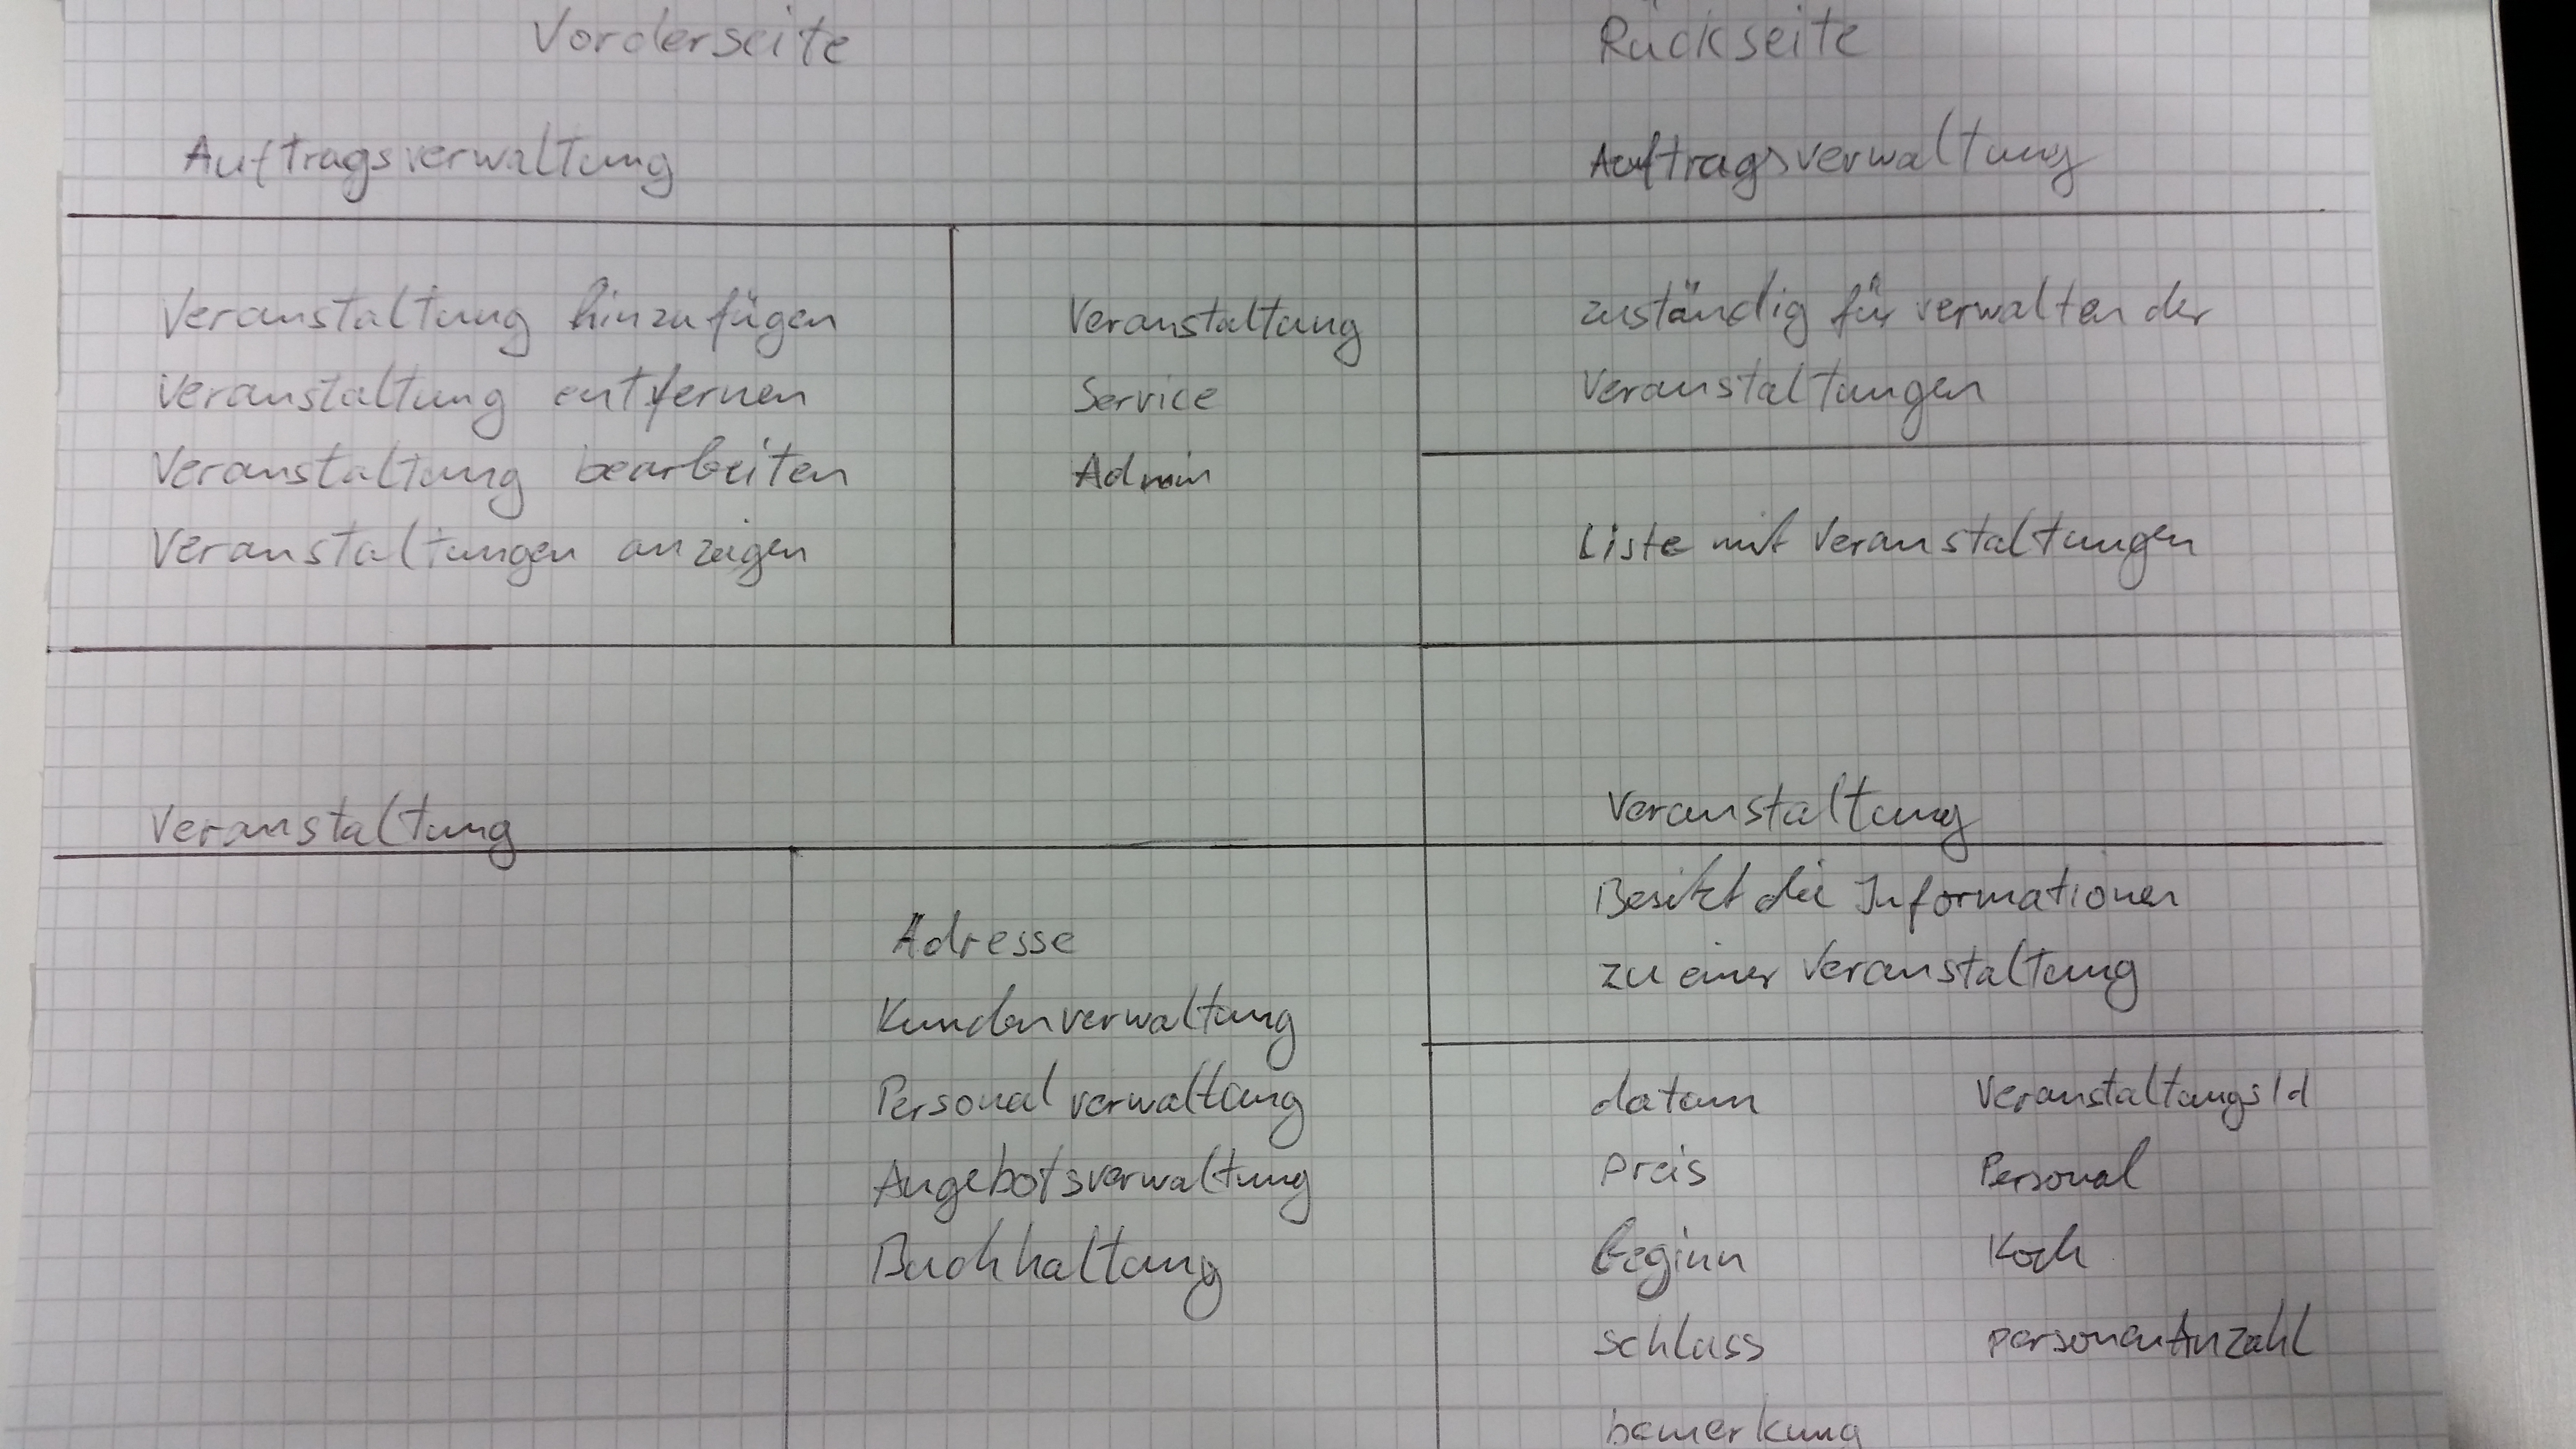 Vorderseite
Auftragsverwaltung
Veranstaltung hinzufügen
Veranstaltung entfernen
Veranstaltung bearbeiten
Veranstaltungen anzeigen
Veranstaltung
Service
Admin
Rückseite
Auftragsverwaltung
zuständig für verwalten der
Veranstaltungen
Liste mit Veranstaltungen
Veranstaltung
Adresse
Kundenverwaltung
Personalverwaltung
Angebotsverwaltung
Buchhaltung
Veranstaltung
Besitzt die Informationen
zu einer Veranstaltung
datum
Preis
beginn
schluss
bemerkung
VeranstaltungsId
Personal
Koch
personenAnzahl